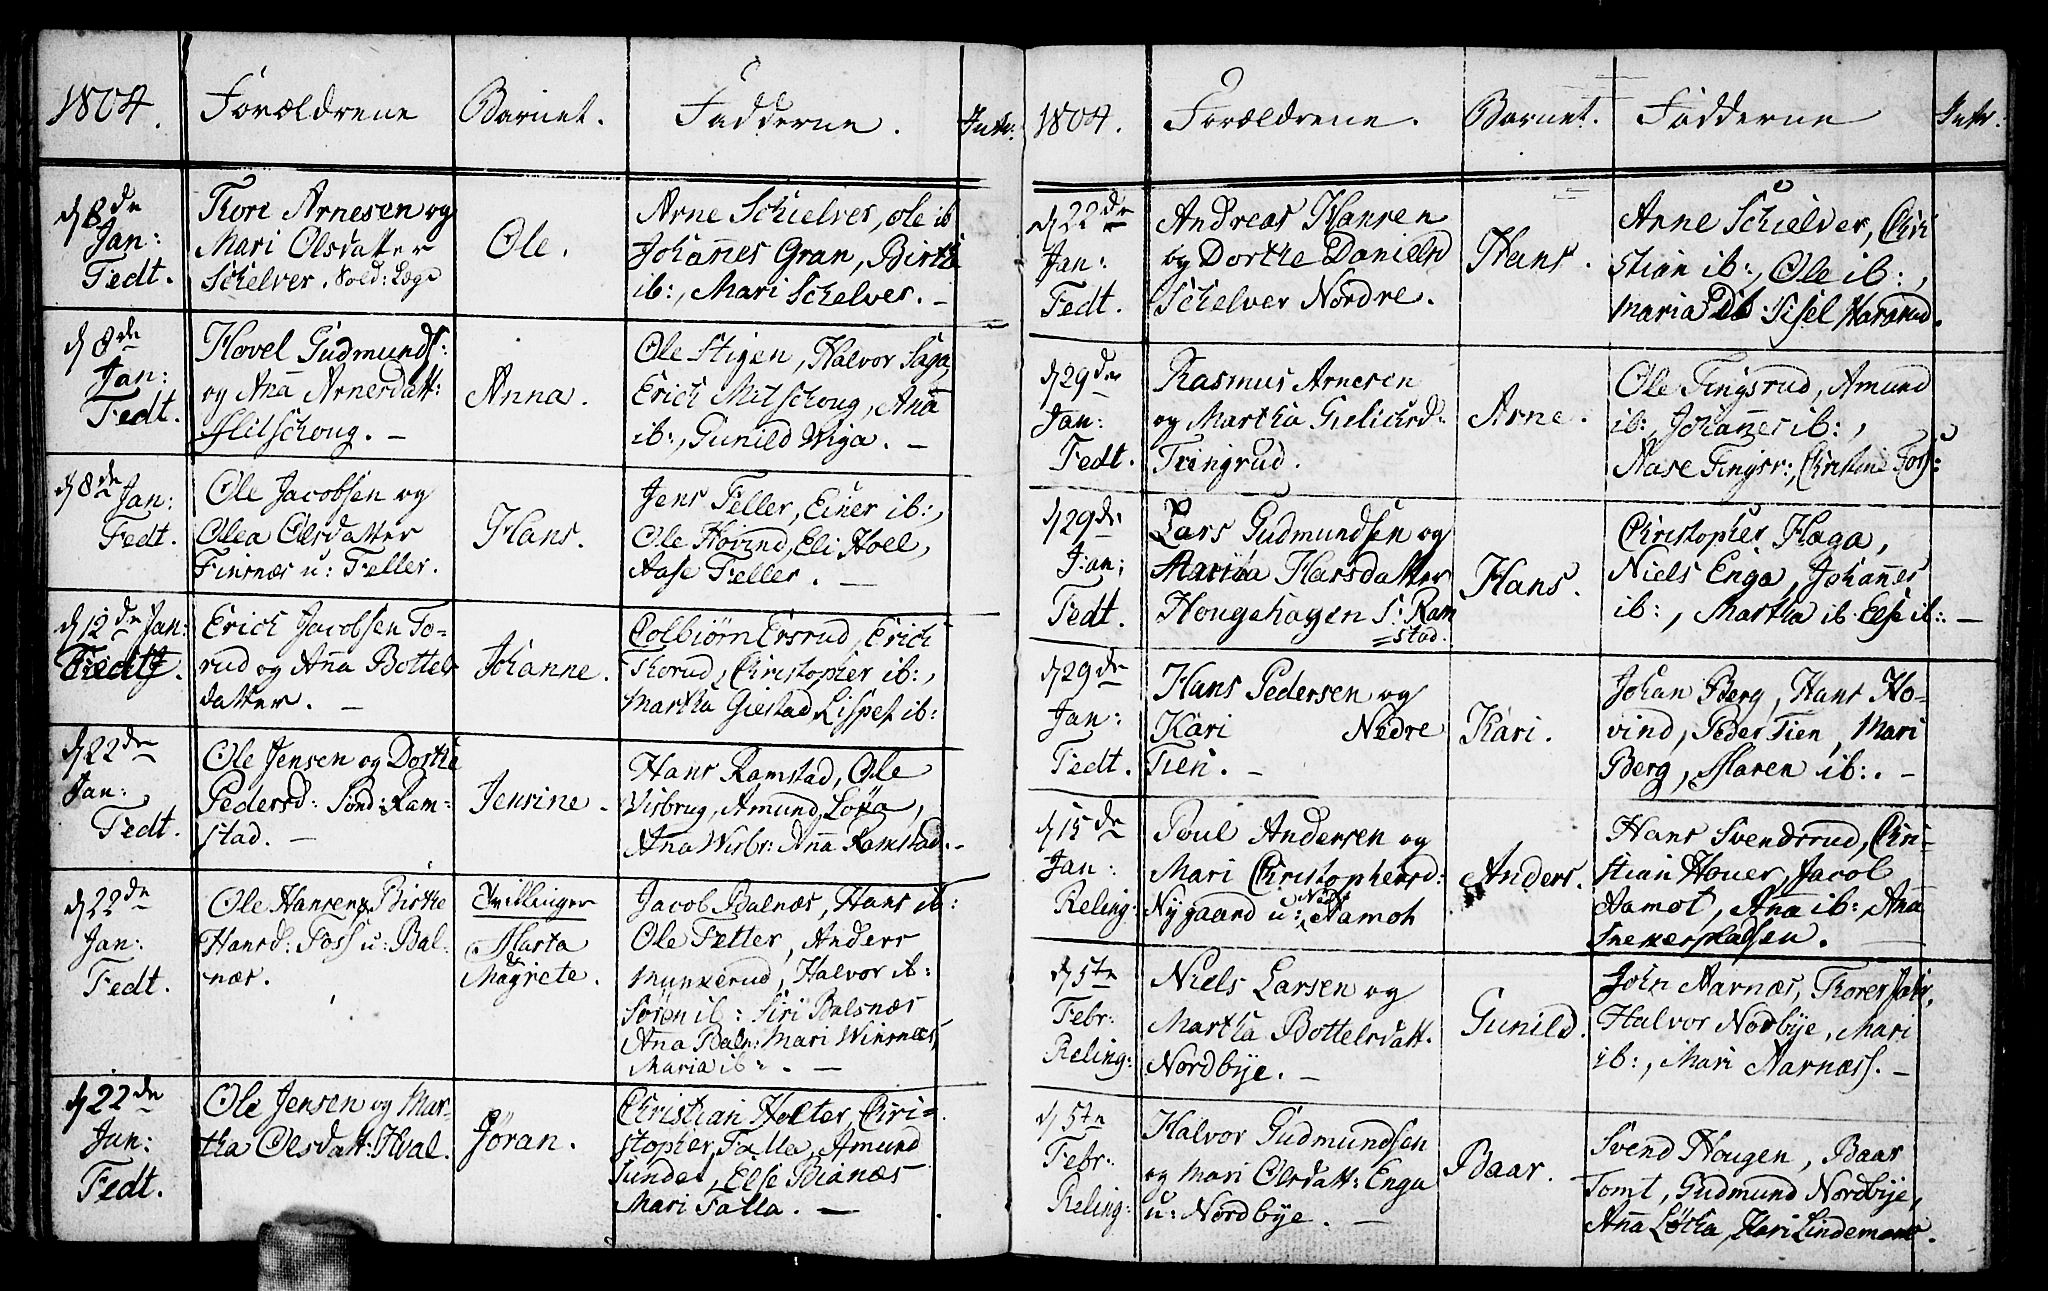 1804.
Forældrene
Barnet.
Fadderne.
Intr:
d 8de
Jan:
Fedt.
Tore Arnesen og
Mari Olsdatter
Schelver. Sold: Læge
Ole.
Arne Schielver, Ole ib
Johannes Gran, Birthe
ib:, Mari Schelver. –
d 8de
Jan:
Fedt.
Hovel Gudmunds:
og Anna Arnesdatt:
Mitschoug. –
Anna.
Ole Stigen, Halvor Haga
Erich Mitschoug, Anna
ib:, Gunild Wiga. –
d 8de Jan:
Fedt.
Ole Jacobsen og
Olea Olsdatter
Finsnæs u: Feller.
Hans.
Jens Feller, Einer ib:,
Ole Hovind, Eli Hoel,
Aase Feller. –
d 12de Jan:
Fedt.
Erich Jacobsen To-
rud og Anna Bottels
datter. –
Johanne.
Colbiörn Ersrud, Erich
Thorud, Christopher ib:,
Martha Giestad, Lispet ib:
d 22de
Jan:
Fedt.
Ole Jensen og Dorthe
Pedersd: Sönd: Ram-
stad. –
Jensine.
Hans Ramstad, Ole
Wisbrug, Amund Löxa,
Anna Wisbr: Anna Ramstad. –
d 22de
Jan:
Fedt.
Ole Hansen og Birthe
Hansd: Foss u: Bal-
næs.
Tvillinger
Marta
&
Magrete.
Jacob Balnæs, Hans ib:
Ole Fetter, Anders
Munkerud, Halvor ib:
Sören ib: Siri Balsnæs
Anna Baln: Mari Winsnæs,
Maria ib: –
d 22de
Jan:
Fedt.
Ole Jensen og Mar-
tha Olsdatt: Hval.
Jöran.
Christian Holter, Chri-
stopher Falla, Amund
Sundet, Else Bianæs
Mari Falla. –
1804.
Forældrene.
Barnet.
Fadderne
Intr.
d 22de
Jan:
Fedt.
Andreas Hansen
og Dorthe Danielsd
Schelver Nordre.
Hans.
Arne Schielver, Chri
stian ib:, Ole ib:,
Maria ib: Sisel Hararud.
d 29de
Jan:
Fedt.
Rasmus Arnesen
og Martha Gulichsd:
Tingrud.
Arne.
Ole Tingsrud, Amund
ib:, Johannes ib:,
Aase Tingsr:, Christine Foss:
d 29de
Jan:
Fedt.
Lars Gudmundsen og
Maria Hansdatter
Hougehagen S: Ram
stad.
Hans.
Christopher Haga,
Niels Enga, Johannes
ib:, Martha ib. Else ib: –
d 29de
Jan:
Fedt.
Hans Pedersen og
Kari Nedre
Tien. –
Kari.
Johan Berg, Hans Ho-
vind, Peder Tien, Mari
Berg, Maren ib:. –
d 15de
Jan:
Reling:
Poul Andersen og
Mari Christophersd:
Nygaard u: Nedr Aamoth
Anders.
Hans Svendsrud, Chri-
stian Hover, Jacob
Aamot, Anna ib:, Anna
Snekkerpladsen.
d 5te
Febr:
Reling:
Niels Larsen og
Martha Bottelsdatt.
Nordbÿe. –
Gunild.
John Aarnæs, Thorer Jahr,
Halvor Nordbÿe, Mari
ib:, Mari Aarnæss. –
d 5te
Febr:
Reling:
Halvor Gudmundsen
og Mari Olsdatt: Enga
u: Nordbÿe. –
Baar.
Svend Hougen, Baar
Tomt, Gudmund Nordbÿe,
Anna Lötha, Kari Lindemoe.